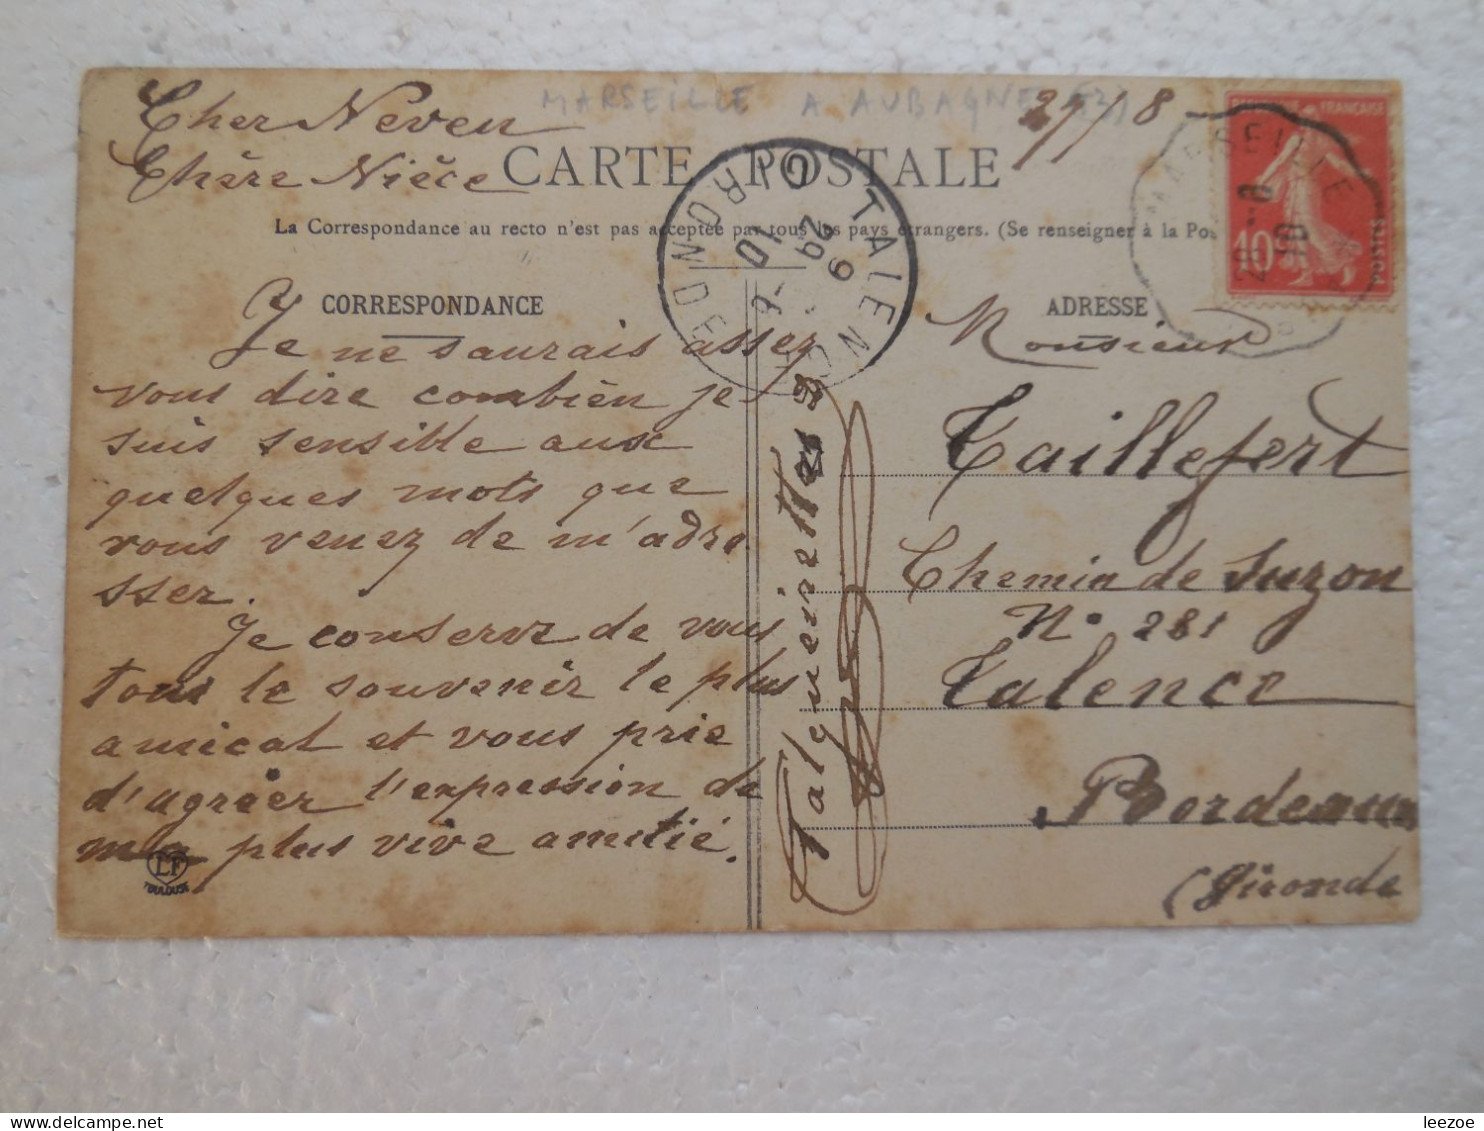 Cher Neveu
Chère Nièce
MARSEILLE A AUBAGNE
27/8
CARTE POSTALE
La Correspondance au recto n'est pas acceptée par tous les pays étrangers. (Se renseigner à la Pos
CORRESPONDANCE
Je ne saurais assez
vous dire combien je
suis sensible aux
quelques mots que
vous venez de m'adre
sser.
Je conserve de vous
tous le souvenir le plus
amical et vous prie
d'agréer l'expression de
ma plus vive amitié.
LF
TOULOUSE
TALENCE
GIRONDE
29
10
MARSEILLE
28 - 8
10
FRANÇAISE
10
POSTES
ADRESSE
Monsieur
Taillefert
Chemin de Suzon
N° 281
Talence
Bordeaux
(Gironde
leezoe
www.delcampe.net